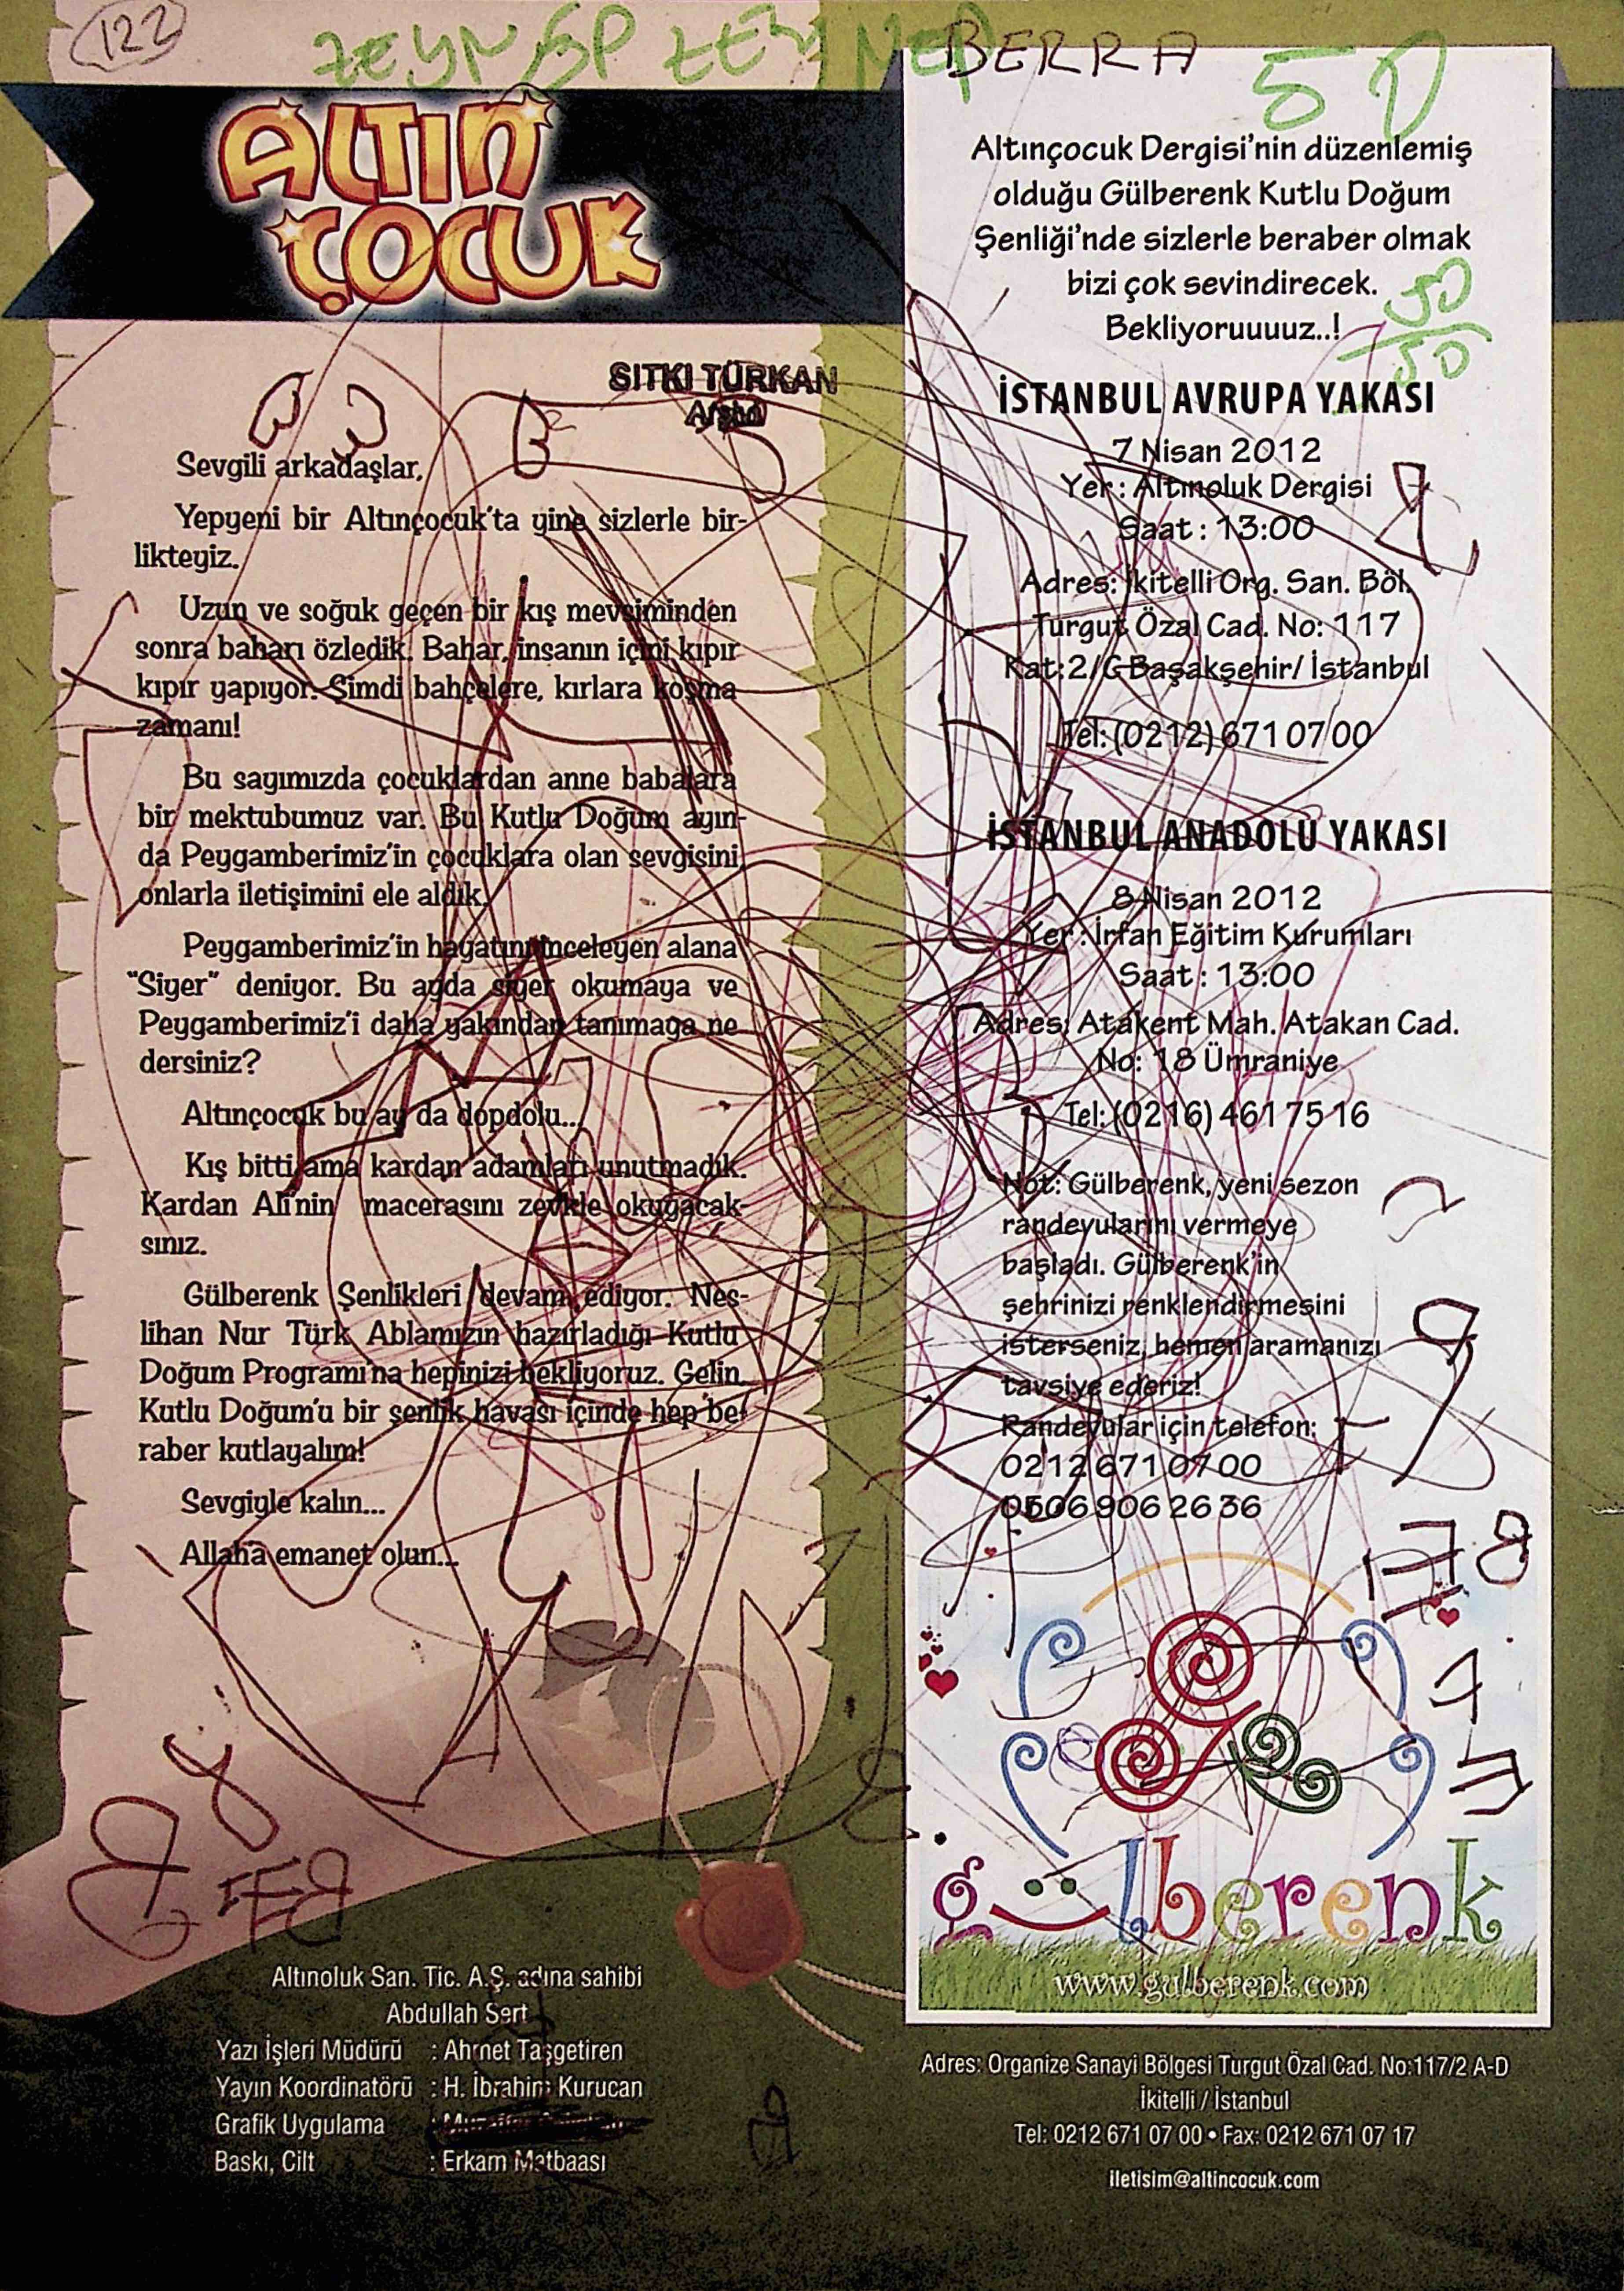 122
ZEYNEP ZEYNEP
BERRA
50
ALTIN
ÇOCUK
SITKI TÜRKAN
Arşivi
Sevgili arkadaşlar,
Yepyeni bir Altınçocuk'ta yine sizlerle bir-
likteyiz.
Uzun ve soğuk geçen bir kış mevsiminden
sonra baharı özledik. Bahar, insanın içini kıpır
kıpır yapıyor. Şimdi bahçelere, kırlara koşma
zamanı!
Bu sayımızda çocuklardan anne babalara
bir mektubumuz var. Bu Kutlu Doğum ayın-
da Peygamberimiz'in çocuklara olan sevgisini,
onlarla iletişimini ele aldık.
Peygamberimiz'in hayatını inceleyen alana
"Siyer" deniyor. Bu ayda siyer okumaya ve
Peygamberimiz'i daha yakından tanımaya ne
dersiniz?
Altınçocuk bu ay da dopdolu...
Kış bitti ama kardan adamları unutmadık.
Kardan Ali'nin macerasını zevkle okuyacak-
sınız.
Gülberenk Şenlikleri devam ediyor. Nes-
lihan Nur Türk Ablamızın hazırladığı Kutlu
Doğum Programı'na hepinizi bekliyoruz. Gelin,
Kutlu Doğum'u bir şenlik havası içinde hep be-
raber kutlayalım!
Sevgiyle kalın...
Allah'a emanet olun...
Altınoluk San. Tic. A.Ş. adına sahibi
Abdullah Sert
Yazı İşleri Müdürü : Ahmet Taşgetiren
Yayın Koordinatörü : H. İbrahim Kurucan
Grafik Uygulama :
Baskı, Cilt : Erkam Matbaası
Altınçocuk Dergisi'nin düzenlemiş
olduğu Gülberenk Kutlu Doğum
Şenliği'nde sizlerle beraber olmak
bizi çok sevindirecek.
Bekliyoruuuuz..!
50
50
İSTANBUL AVRUPA YAKASI
7 Nisan 2012
Yer : Altınoluk Dergisi
Saat : 13:00
Adres: İkitelli Org. San. Böl.
Turgut Özal Cad. No: 117
Kat:2/C Başakşehir/ İstanbul
Tel: (0212) 671 07 00
İSTANBUL ANADOLU YAKASI
8 Nisan 2012
Yer : İrfan Eğitim Kurumları
Saat : 13:00
Adres: Atakent Mah. Atakan Cad.
No: 18 Ümraniye
Tel: (0216) 461 75 16
Not: Gülberenk, yeni sezon
randevularını vermeye
başladı. Gülberenk'in
şehrinizi renklendirmesini
isterseniz, hemen aramanızı
tavsiye ederiz!
Randevular için telefon:
0212 671 07 00
0506 906 26 36
gülberenk
www.gulberenk.com
Adres: Organize Sanayi Bölgesi Turgut Özal Cad. No:117/2 A-D
İkitelli / İstanbul
Tel: 0212 671 07 00 • Fax: 0212 671 07 17
iletisim@altincocuk.com